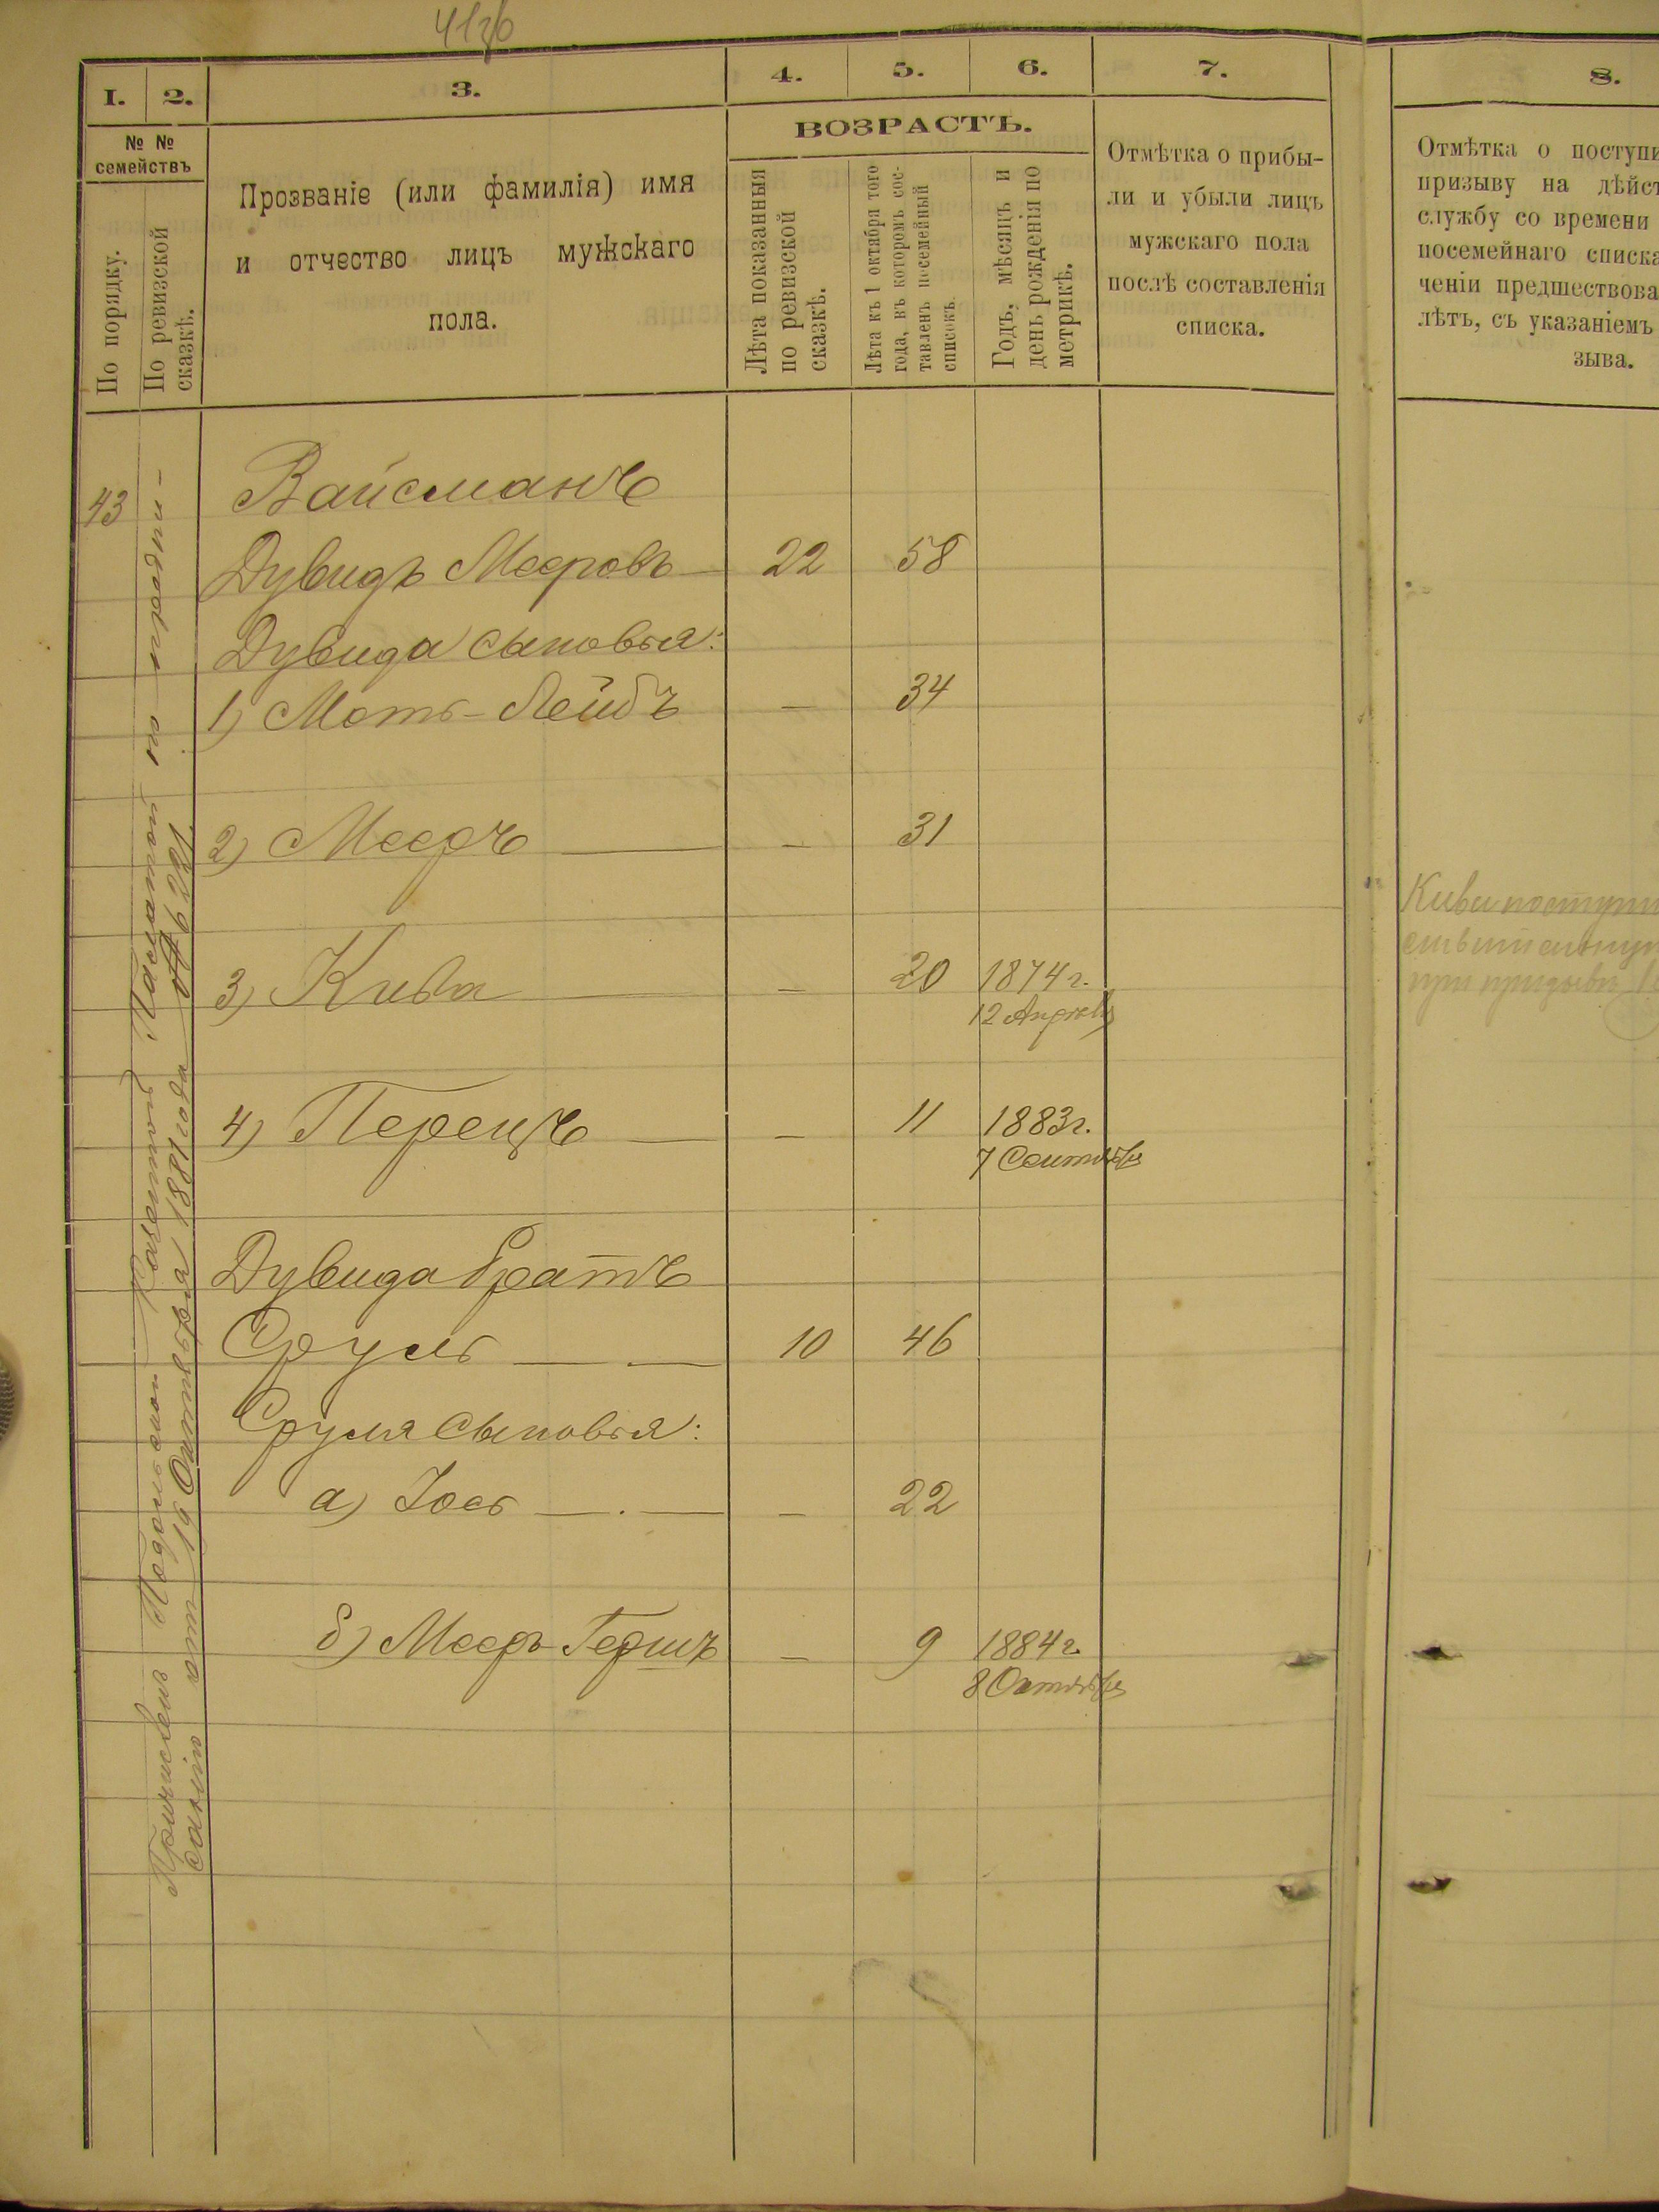 I. 2. 3. 4. 5. 6. 7. 8.
№ №
семействъ
По порядку.
По ревизской
сказкѣ.
Прозваніе (или фамилія) имя
и отчество лицъ мужскаго
пола.
ВОЗРАСТЪ.
Лѣта показанныя
по ревизской
сказкѣ.
Лѣта къ 1 октября того
года, въ которомъ сос-
тавленъ посемейный
списокъ.
Годъ, мѣсяцъ и
день рожденія по
метрикѣ.
Отмѣтка о прибы-
ли и убыли лицъ
мужскаго пола
послѣ составленія
списка.
Отмѣтка о поступи
призыву на дѣйст
службу со времени
посемейнаго списка
ченіи предшествова
лѣтъ, съ указаніемъ
зыва.
43
Причисленъ Подольской Казенной Палатой по предпи-
санію отъ 19 Октября 1881 года № 6221.
Вайсманъ
Дувидъ Мееровъ 22 58
Дувида сыновья:
1) Моть-Лейбъ — 34
2) Мееръ — — 31
3) Кива — — 20 1874 г.
12 Апрѣля
4) Перецъ — — 11 1883 г.
7 Сентября
Дувида братъ
Сруль — — 10 46
Сруля сыновья:
а) Іось — . — — 22
б) Мееръ-Гершъ — 9 1884 г.
8 Октября
Кива поступи
при призывѣ